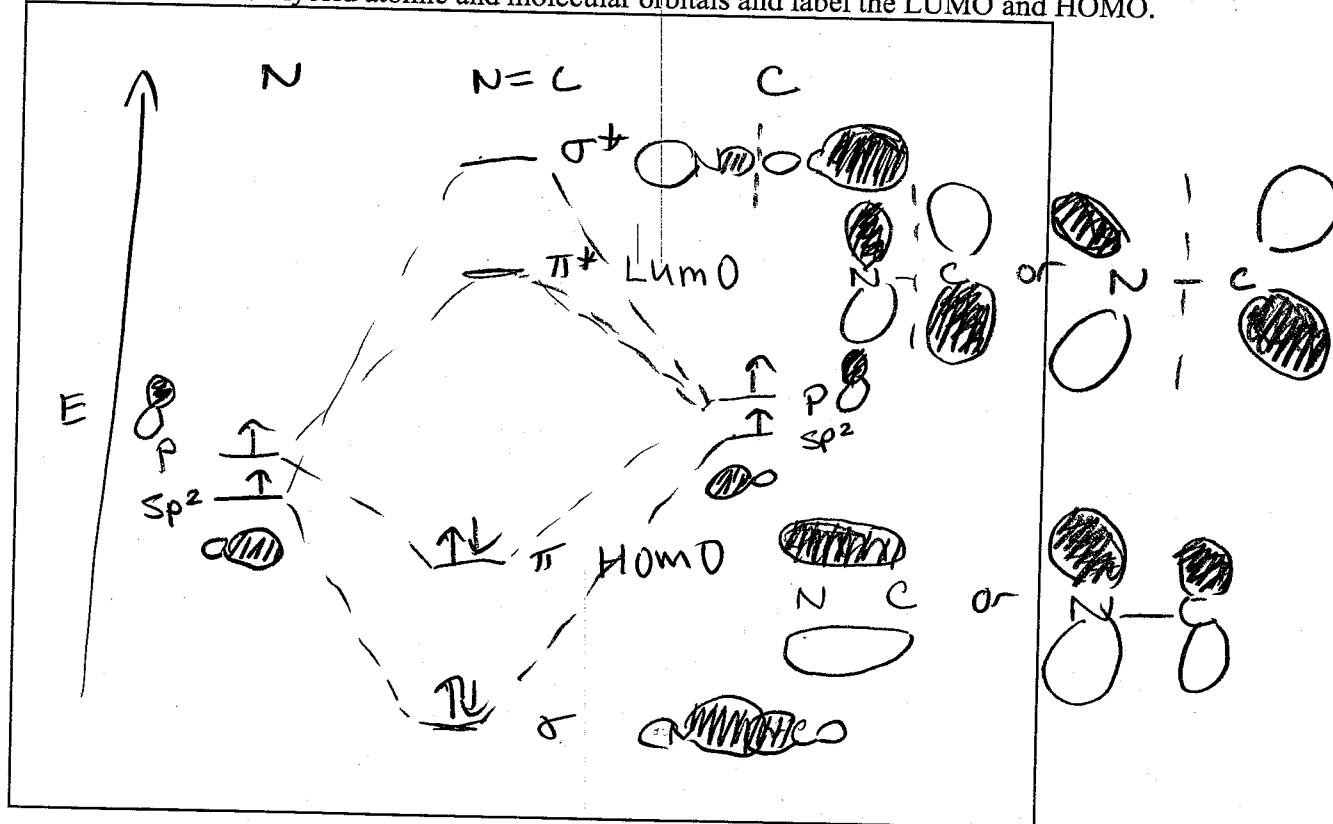 atomic and molecular orbitals and label the LUMO and HOMO.
N N=C C
σ*
π* LumO
N C or N C
E
P
P
Sp²
Sp²
π HomO
N C or N C
σ
N C